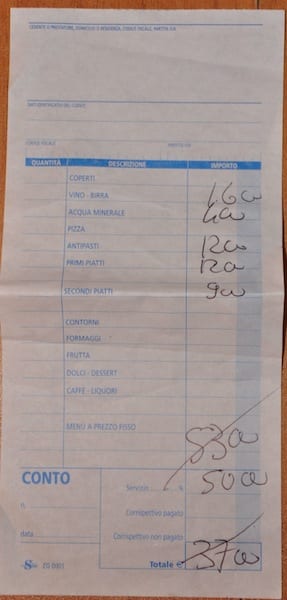 CEDENTE O PRESTATORE, DOMICILIO O RESIDENZA, CODICE FISCALE, PARTITA IVA
DATI IDENTIFICATIVI DEL CLIENTE
CODICE FISCALE PARTITA IVA
QUANTITÀ DESCRIZIONE IMPORTO
COPERTI
VINO - BIRRA 16 00
ACQUA MINERALE 4 00
PIZZA
ANTIPASTI 12 00
PRIMI PIATTI 12 00
SECONDI PIATTI 9 00
CONTORNI
FORMAGGI
FRUTTA
DOLCI - DESSERT
CAFFÈ - LIQUORI
MENU A PREZZO FISSO
53 00
CONTO
Servizio ......... % 50 00
n.
Corrispettivo pagato
data
Corrispettivo non pagato
Totale € 37 00